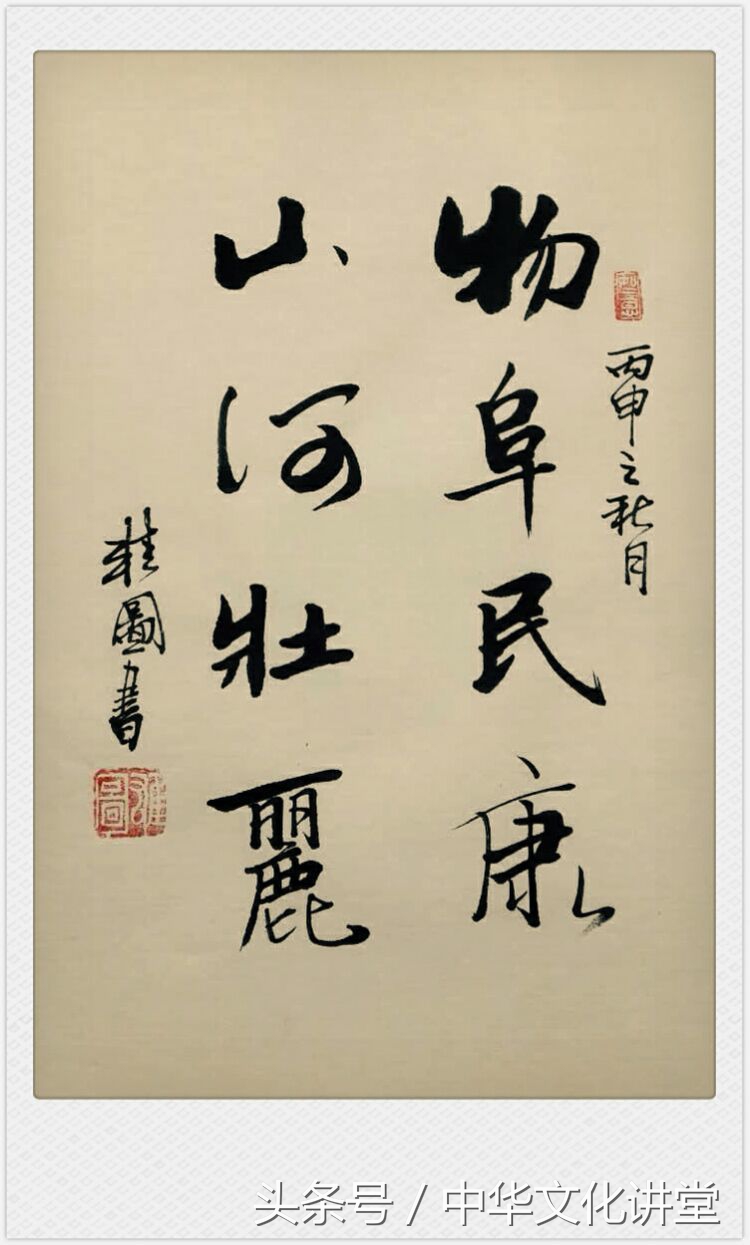 丙申之秋月
物阜民康
山河壮麗
桂圖書
头条号 / 中华文化讲堂